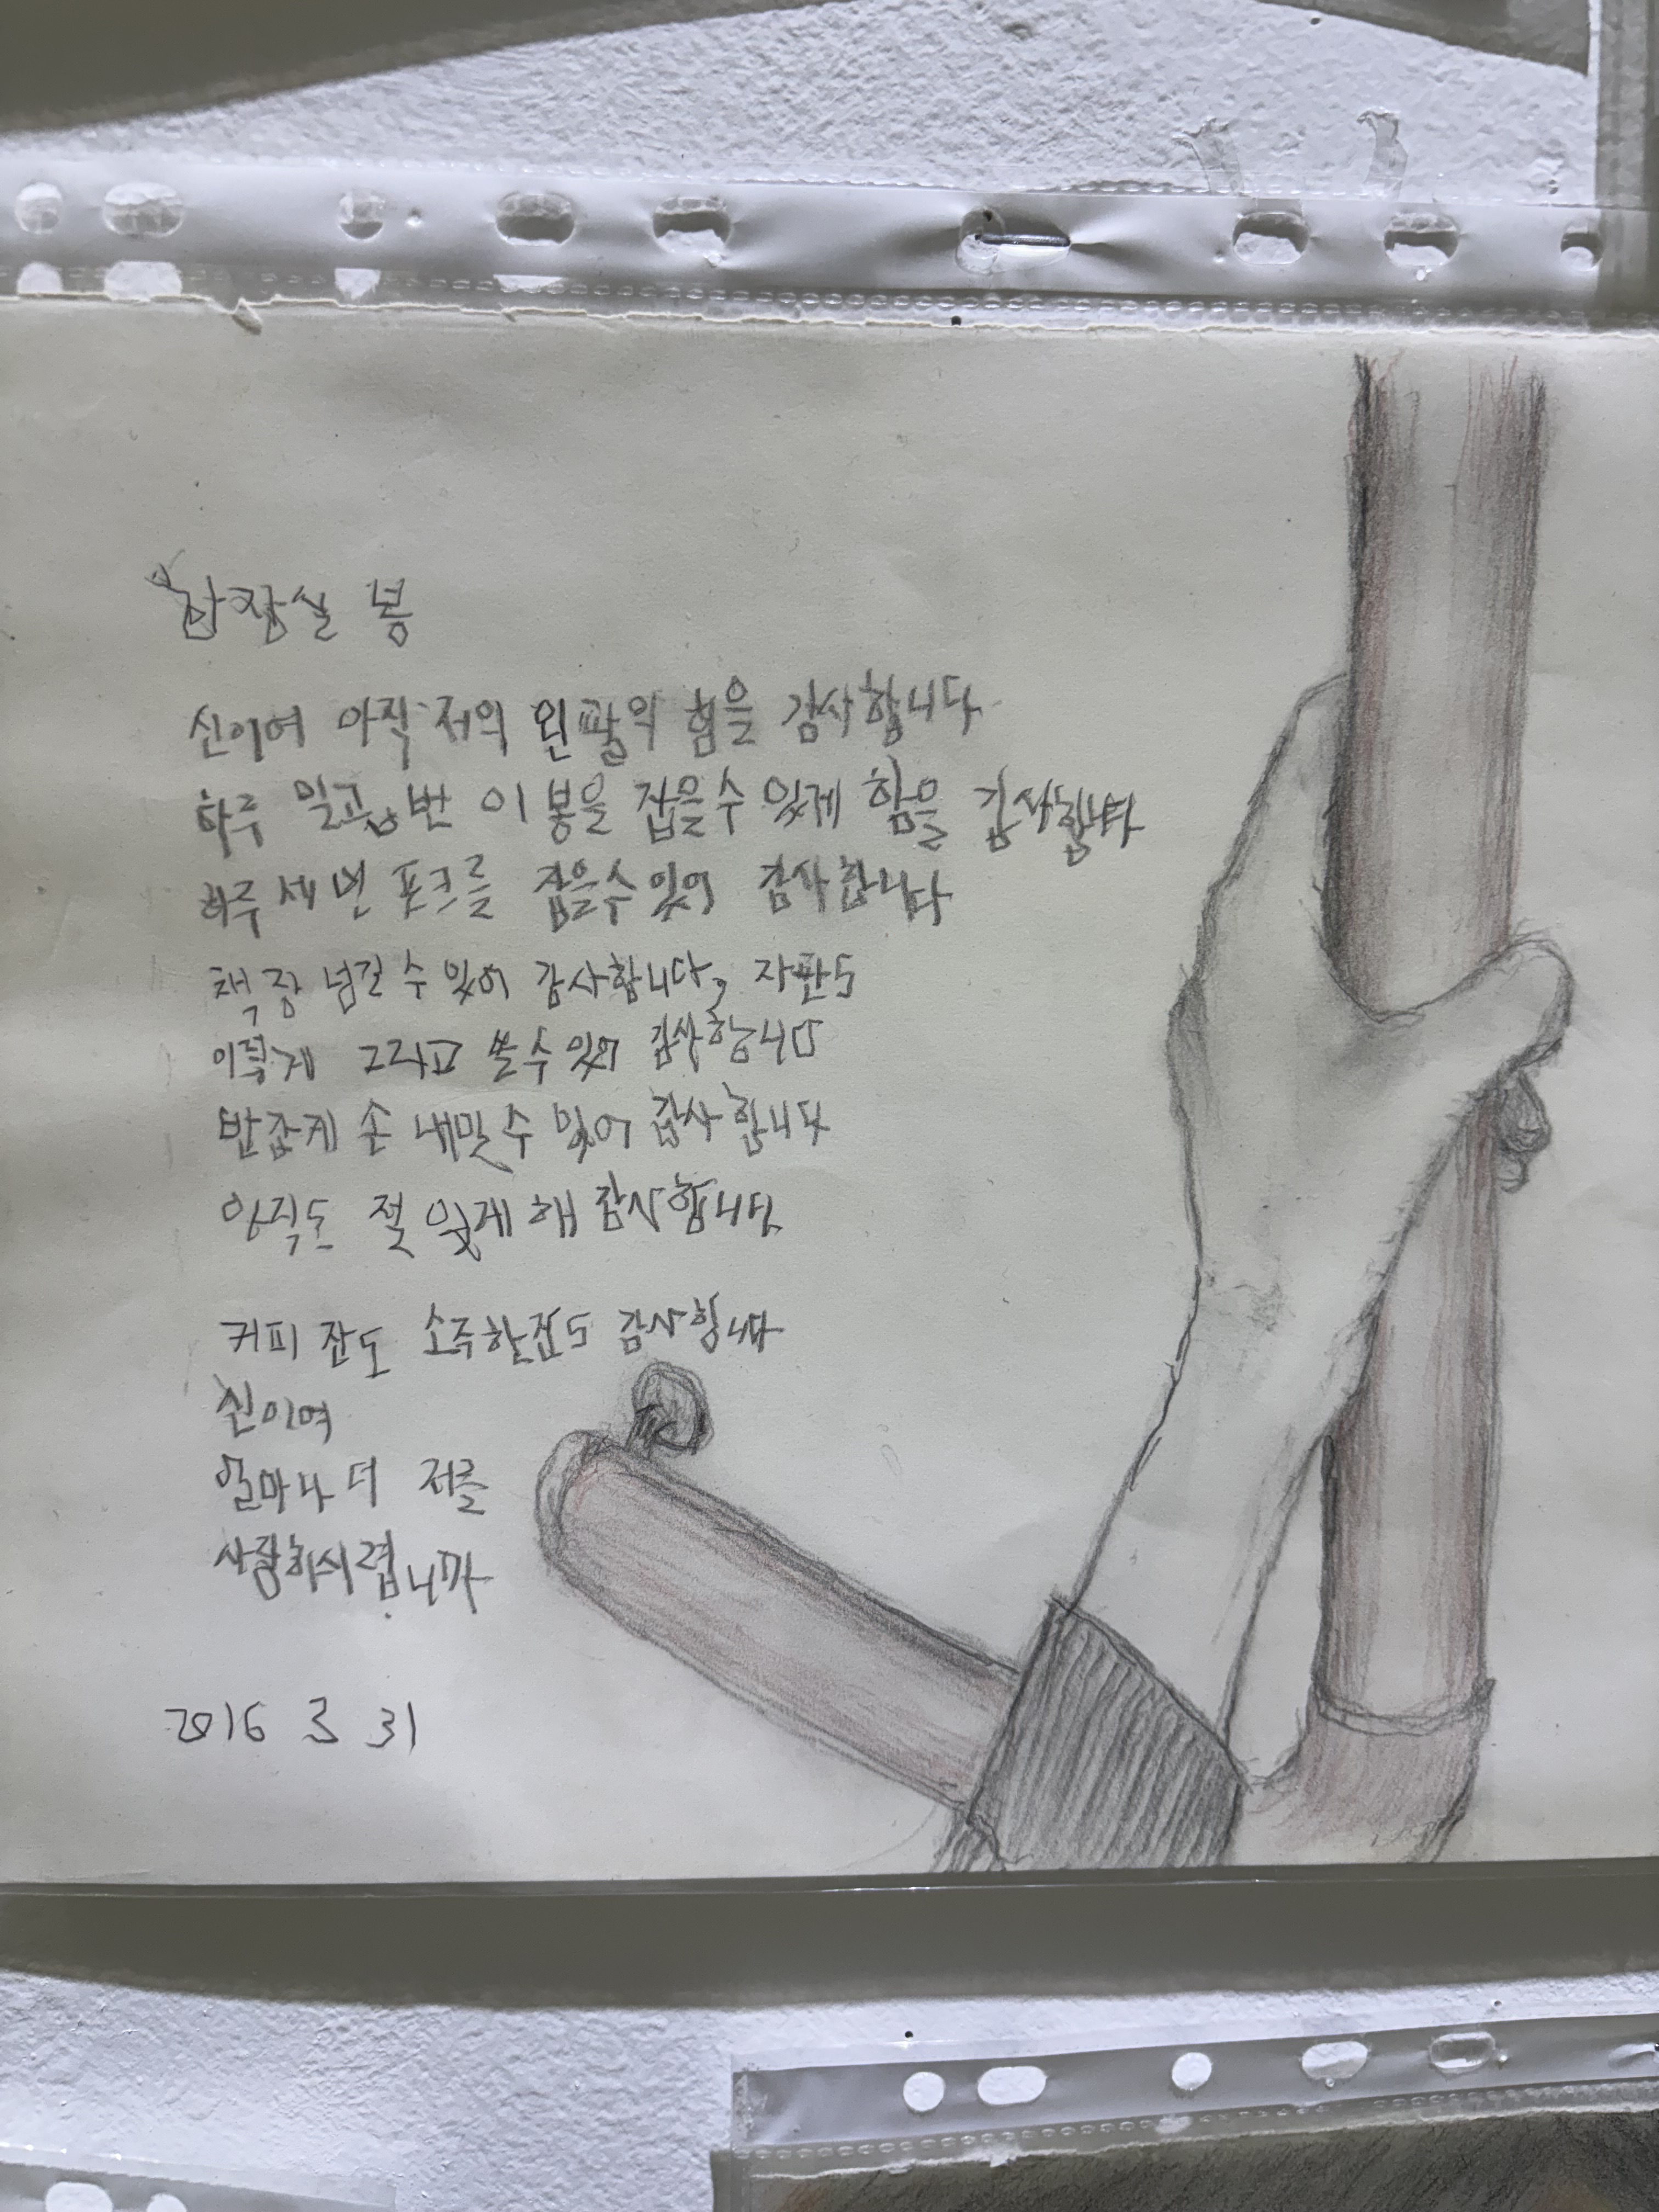 화장실 봉
신이여 아직 저의 왼팔의 힘을 감사합니다
하루 일고여덟번 이 봉을 잡을수 있게 힘을 감사합니다
하루 세 번 포크를 잡을수있어 감사합니다
책장 넘길 수 있어 감사합니다, 자판도
이렇게 그리고 쓸 수 있어 감사합니다
반갑게 손 내밀 수 있어 감사합니다
아직도 절 있게 해 감사합니다
커피 잔도 소주한잔도 감사합니다
신이여
얼마나 더 저를
사랑하시렵니까
2016 3 31